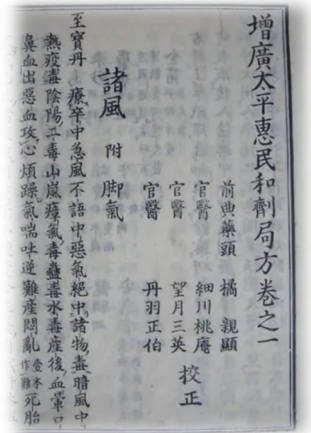 增廣太平惠民和劑局方卷之一
前典藥頭 橘 親顯
官醫 細川桃庵
官醫 望月三英 校正
官醫 丹羽正伯
諸風 附脚氣
至寶丹 療卒中急風不語中惡氣絕中諸物毒暗風中
熱疫毒陰陽二毒山嵐瘴氣毒蠱毒水毒產後血暈口
鼻血出惡血攻心煩躁氣喘吐逆難產悶亂壹本作難死胎